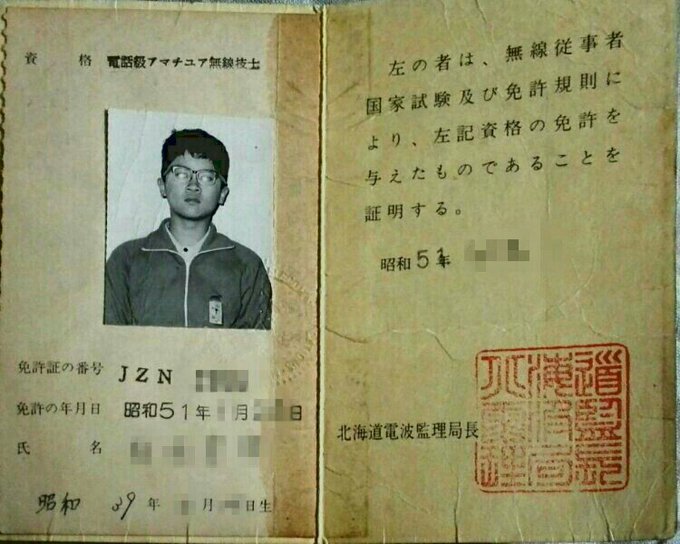 資格 電話級アマチュア無線技士
免許証の番号 JZN
免許の年月日 昭和51年 月 日
氏名
昭和 39年 月 日生
左の者は、無線従事者
国家試験及び免許規則に
より、左記資格の免許を
与えたものであることを
証明する。
昭和51年
北海道電波監理局長